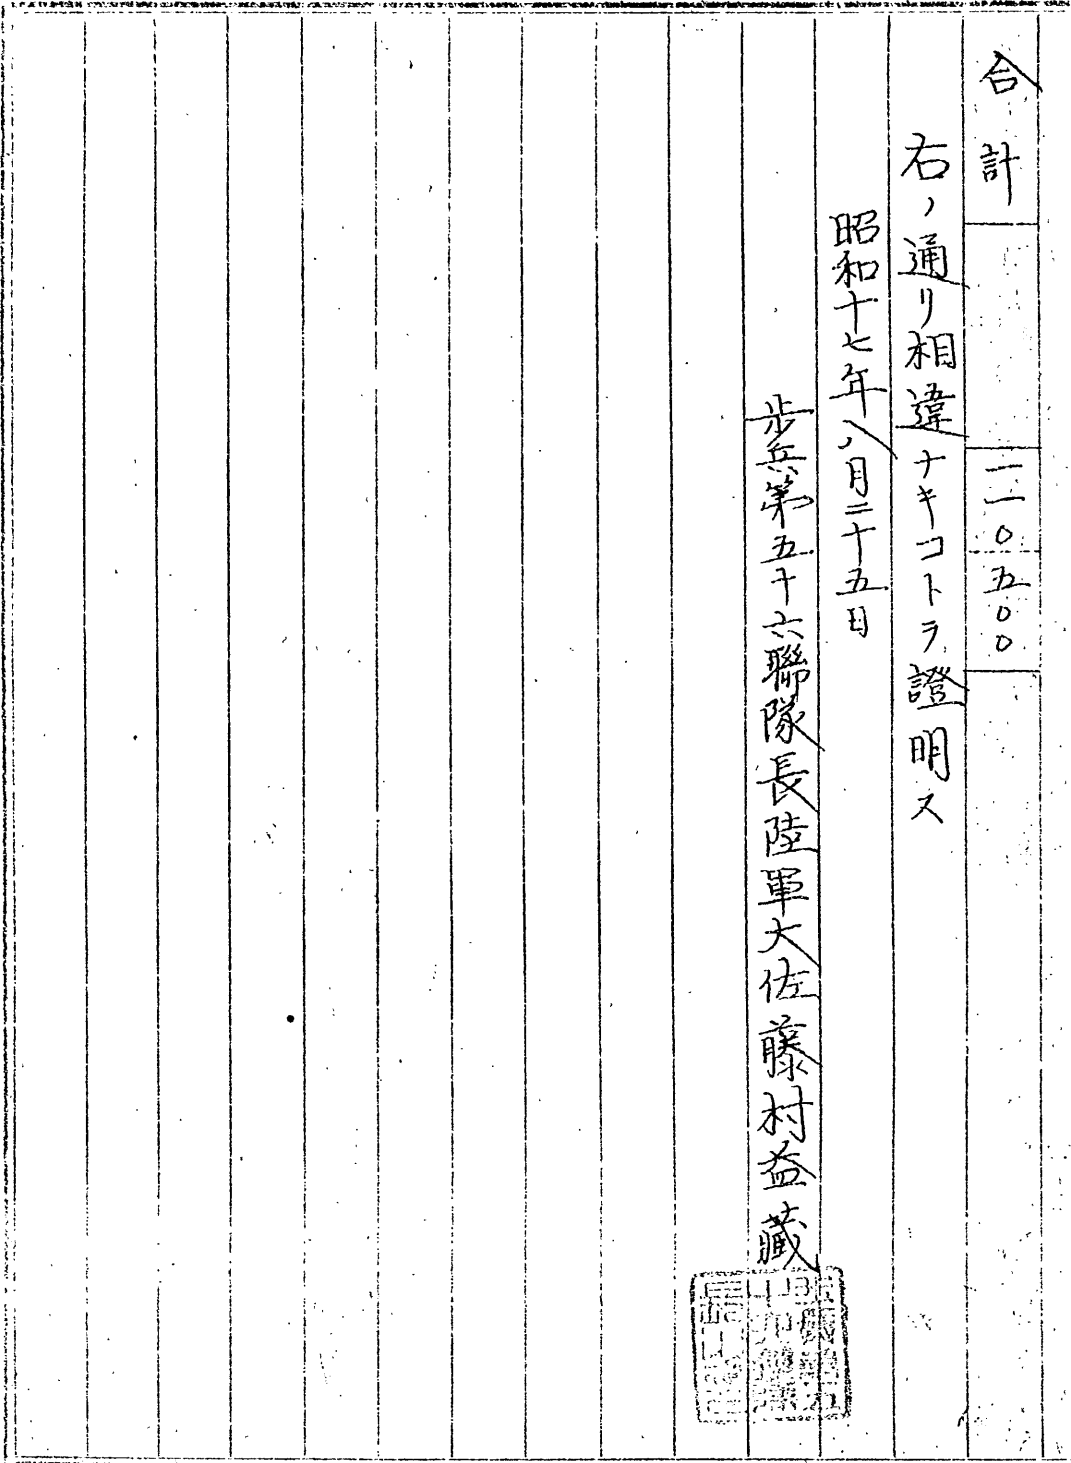 合計 一一〇五〇〇
右ノ通リ相違ナキコトヲ證明ス
昭和十七年八月二十五日
歩兵第五十六聯隊長陸軍大佐藤村益藏